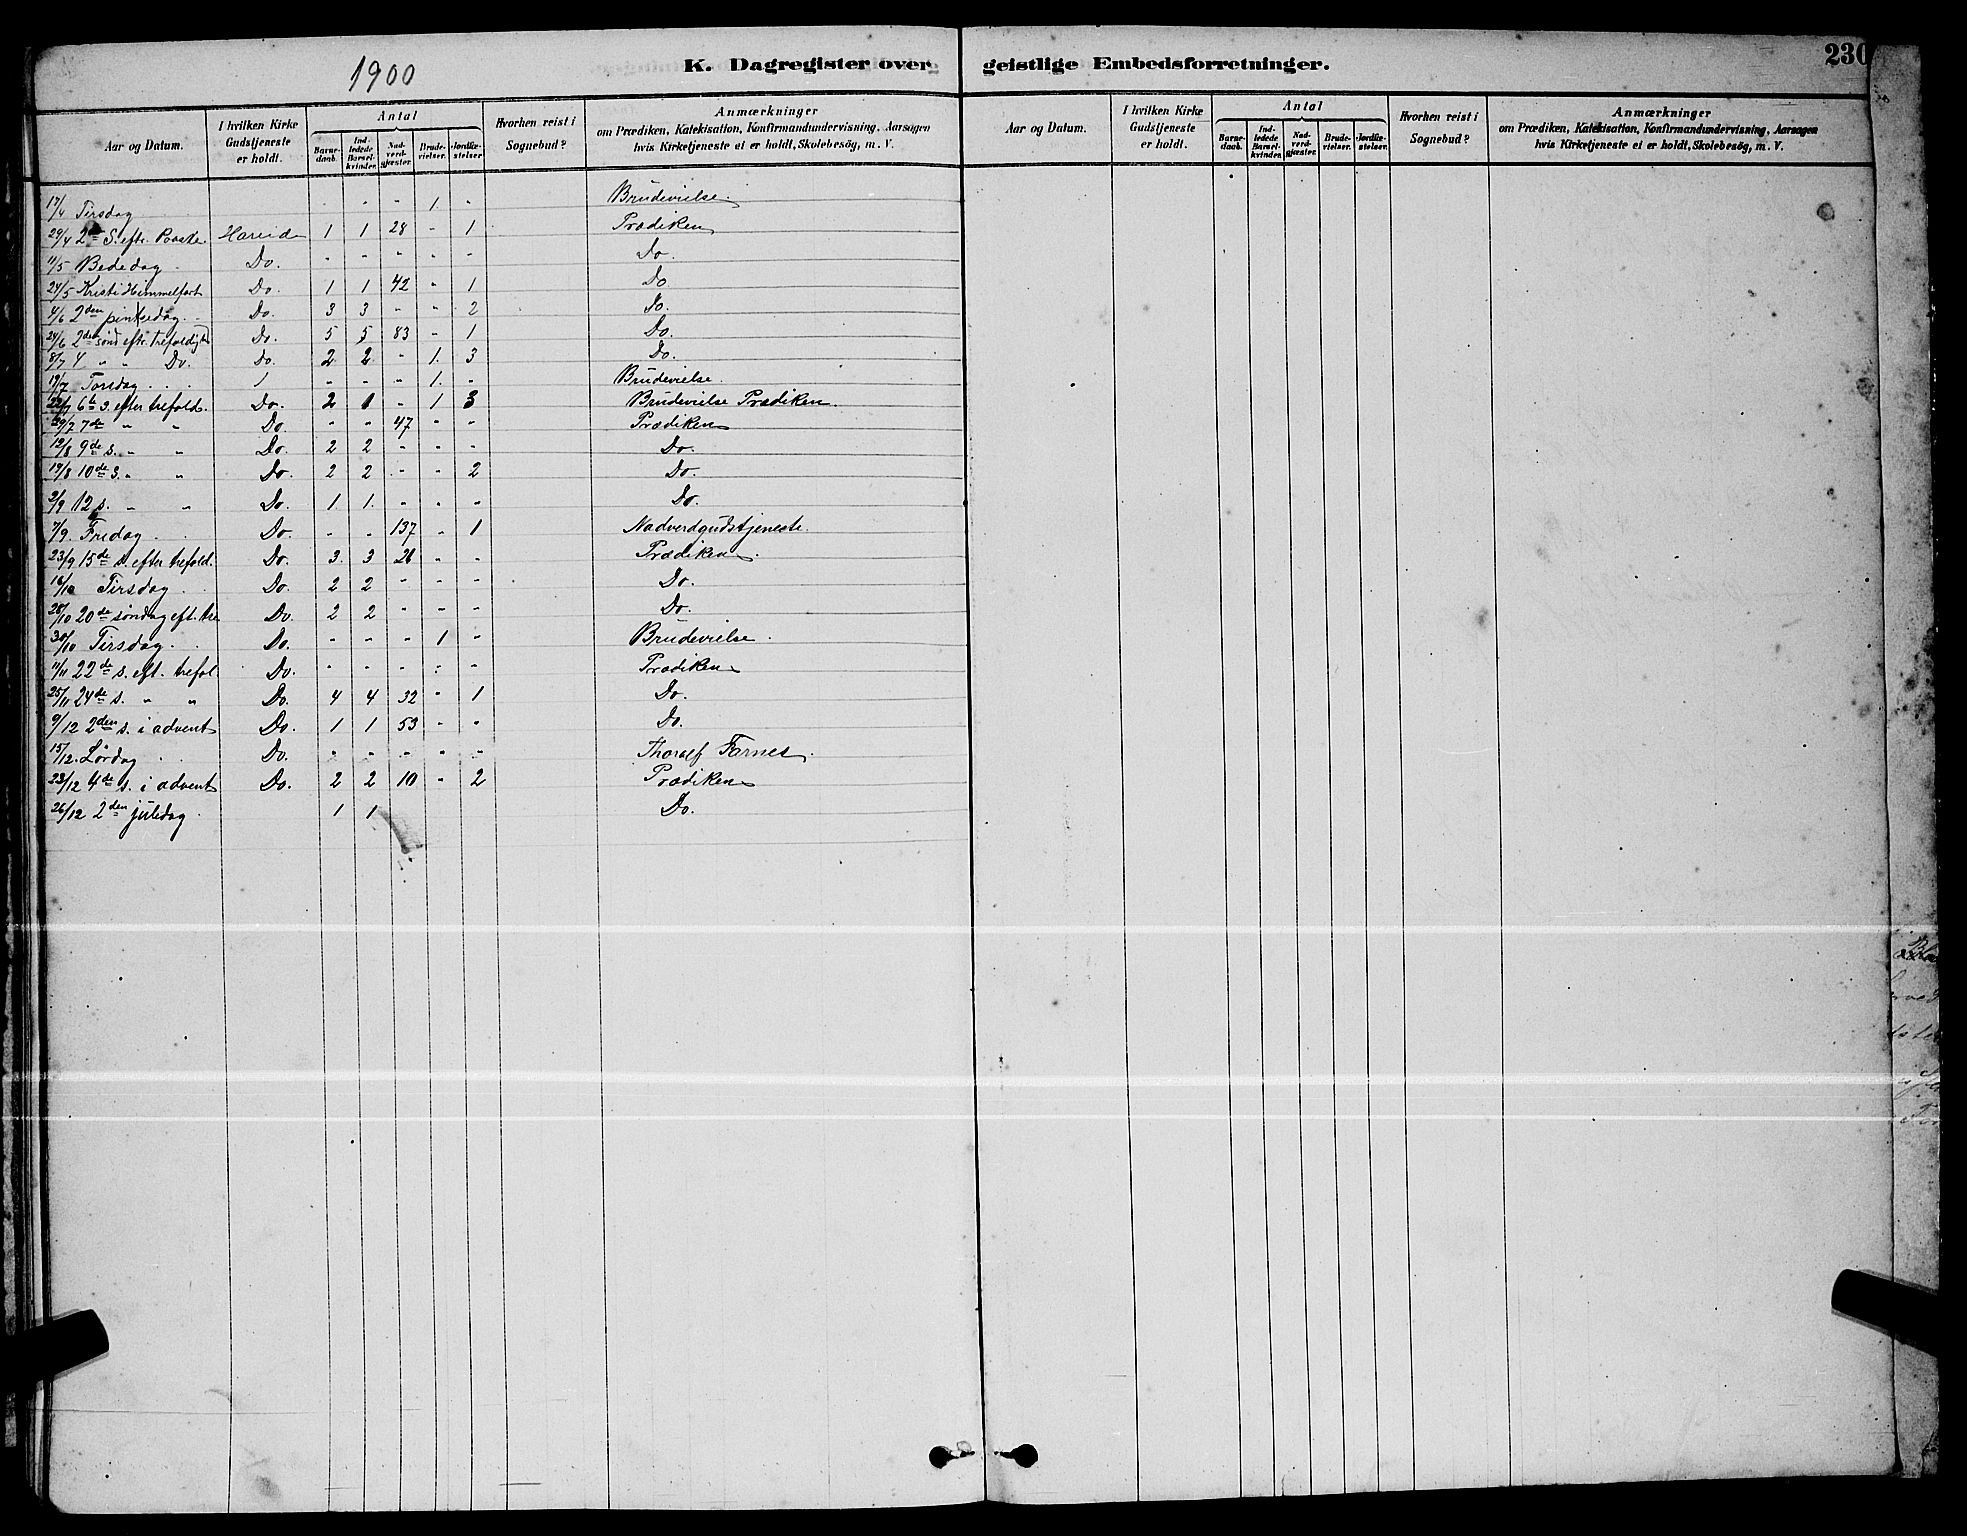 1900
K. Dagregister over geistlige Embedsforretninger.
230
Aar og Datum. | I hvilken Kirke Gudstjeneste er holdt. | Antal | Barne-daab. | Ind-ledede Barsel-kvinder. | Nad-verd-gjæster. | Brude-vielser. | Jordfæ-stelser. | Hvorhen reist i Sognebud? | Anmærkninger om Prædiken, Katekisation, Konfirmandundervisning, Aarsagen hvis Kirketjeneste ei er holdt, Skolebesøg, m. V.
17/4 Tirsdag - - - 1. - Brudevielse.
29/4 2de S. eftr. Paaske. Hareid 1 1 28 - 1 Prædiken
11/5 Bededag. Do. - - - - - Do.
24/5 Kristi Himmelfart Do. 1 1 42 - 1 Do
4/6 2den pintsedag. Do. 3 3 - - 2 Do.
24/6 2den sønd eftr. trefoldigh Do. 5 5 83 - 1 Do.
8/7 4 " " Do. Do. 2 2 - 1. 3 Do.
19/7 Torsdag . . . - - - 1. - Brudevielse.
22/7 6te s. efter trefold. Do. 2 1 - 1 3 Brudevielse Prædiken.
29/7 7de " " Do. - - 47 - - Prædiken
12/8 9de s. " " Do. 2 2 - - - Do.
19/8 10de s. " " Do. 2 2 - - 2 Do.
2/9 12 s. " " Do. 1. 1. - - - Do.
7/9. Fredag . . Do. - - 137 - 1 Nadverdgudstjeneste.
23/9 15de s. efter trefold. Do. 3. 3 26 - - Prædiken.
16/10 Tirsdag . . Do. 2 2 - - - Do.
28/10 20de søndag eft. tre Do. 2 2 - - - Do.
30/10 Tirsdag . . Do. - - - 1 - Brudevielse.
11/11 22de s. eft. trefol. Do. - - - - - Prædiken
25/11 24de s. " " Do. 4 4 32 - 1 Do.
9/12 2den s. i advent Do. 1 1 53 - - Do.
15/12. Lørdag . . Do. - - - - - Thoralf Farnes.
23/12 4de s. i advent Do. 2 2 10 - 2 Prædiken
26/12 2den juledag. 1 1 Do.
Aar og Datum. | I hvilken Kirke Gudstjeneste er holdt. | Antal | Barne-daab. | Ind-ledede Barsel-kvinder. | Nad-verd-gjæster. | Brude-vielser. | Jordfæ-stelser. | Hvorhen reist i Sognebud? | Anmærkninger om Prædiken, Katekisation, Konfirmandundervisning, Aarsagen hvis Kirketjeneste ei er holdt, Skolebesøg, m. V.